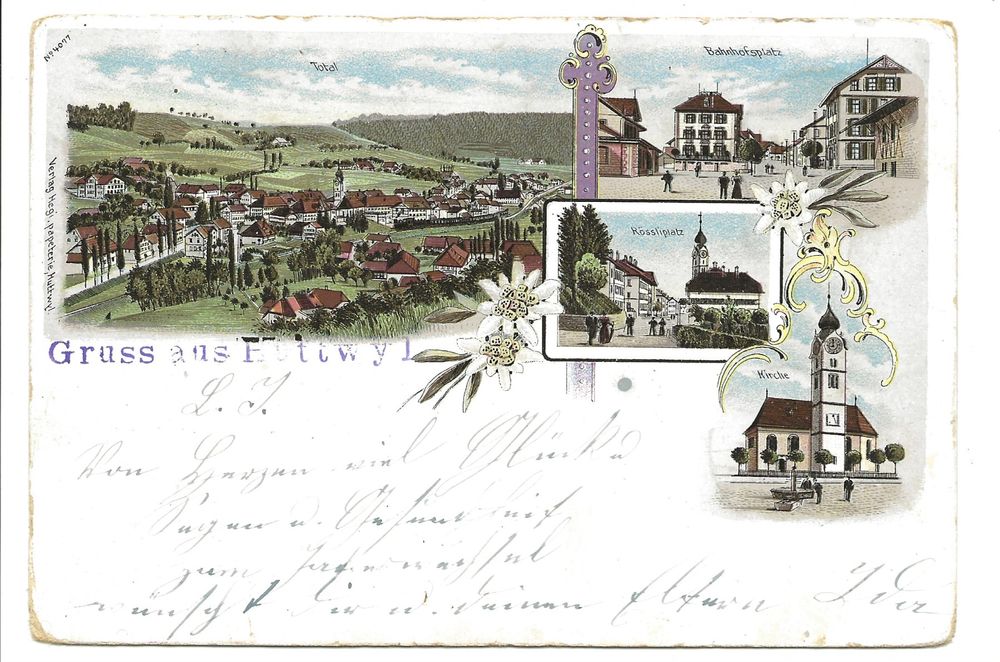 No 4077
Total
Bahnhofsplatz
Rössliplatz
Kirche
Verlag Hegi, papeterie, Huttwyl
Gruss aus Huttwyl
L. I.
Von Herzen viel Glück
Segen u. Gesundheit
zum Jahreswechsel
wünscht dir u. deinen Eltern Ida